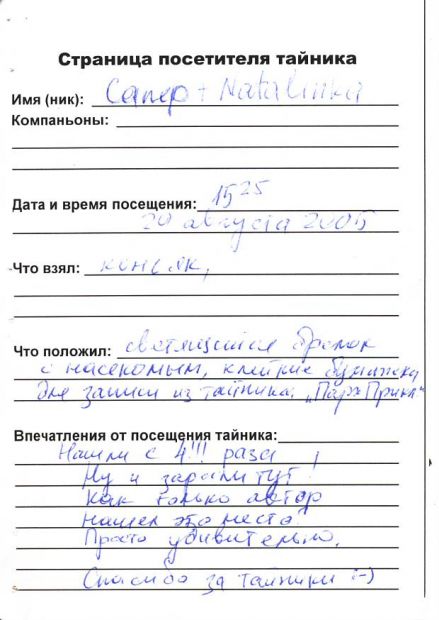 Страница посетителя тайника
Имя (ник): Сапер + Natalinka
Компаньоны:
Дата и время посещения: 15 25
20 августа 2005
-Что взял: коньяк,
Что положил: светящийся брелок
с насекомым, клейкие бумажки
для записи из тайника "Парк
Впечатления от посещения тайника:
Нашли с 4!!! раза
Ну и зарыли тут!
Как только автор
нашел это место!
Просто удивительно.
Спасибо за тайники :-)